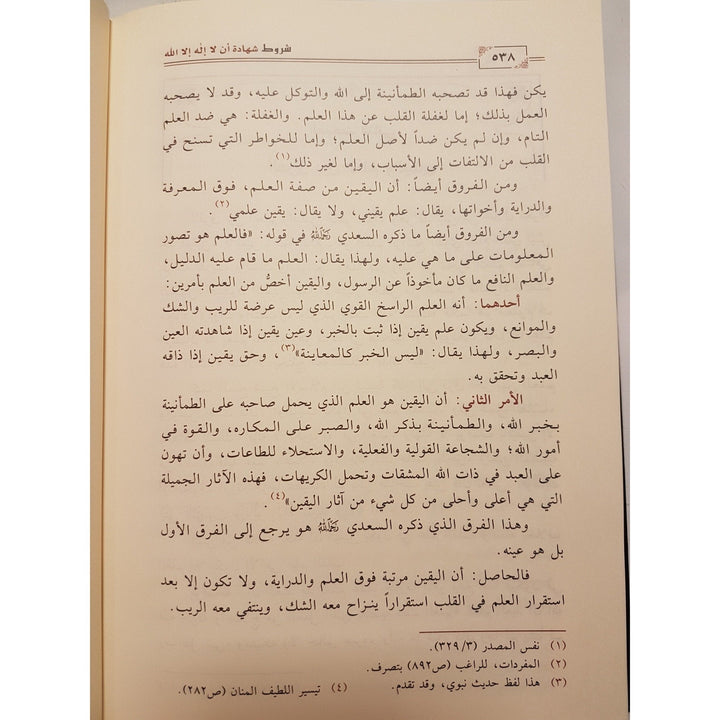 ٥٣٨
شروط شهادة أن لا إله إلا الله
يكن فهذا قد تصحبه الطمأنينة إلى الله والتوكل عليه، وقد لا يصحبه
العمل بذلك؛ إما لغفلة القلب عن هذا العلم. والغفلة: هي ضد العلم
التام، وإن لم يكن ضداً لأصل العلم؛ وإما للخواطر التي تسنح في
القلب من الالتفات إلى الأسباب، وإما لغير ذلك»(١).
ومن الفروق أيضاً: أن اليقين من صفة العلم، فوق المعرفة
والدراية وأخواتها، يقال: علم يقيني، ولا يقال: يقين علمي(٢).
ومن الفروق أيضاً ما ذكره السعدي رحمه الله في قوله: «فالعلم هو تصور
المعلومات على ما هي عليه، ولهذا يقال: العلم ما قام عليه الدليل،
والعلم النافع ما كان مأخوذاً عن الرسول، واليقين أخصُّ من العلم بأمرين:
أحدهما: أنه العلم الراسخ القوي الذي ليس عرضة للريب والشك
والموانع، ويكون علم يقين إذا ثبت بالخبر، وعين يقين إذا شاهدته العين
والبصر، ولهذا يقال: «ليس الخبر كالمعاينة»(٣)، وحق يقين إذا ذاقه
العبد وتحقق به.
الأمر الثاني: أن اليقين هو العلم الذي يحمل صاحبه على الطمأنينة
بخبر الله، والطمأنينة بذكر الله، والصبر على المكاره، والقوة في
أمور الله؛ والشجاعة القولية والفعلية، والاستحلاء للطاعات، وأن تهون
على العبد في ذات الله المشقات وتحمل الكريهات، فهذه الآثار الجميلة
التي هي أعلى وأحلى من كل شيء من آثار اليقين»(٤).
وهذا الفرق الذي ذكره السعدي رحمه الله هو يرجع إلى الفرق الأول
بل هو عينه.
فالحاصل: أن اليقين مرتبة فوق العلم والدراية، ولا تكون إلا بعد
استقرار العلم في القلب استقراراً ينزاح معه الشك، وينتفي معه الريب.
(١) نفس المصدر (٣٢٩/٣).
(٢) المفردات، للراغب (ص٨٩٢) بتصرف.
(٣) هذا لفظ حديث نبوي، وقد تقدم. (٤) تيسير اللطيف المنان (ص٢٨٢).